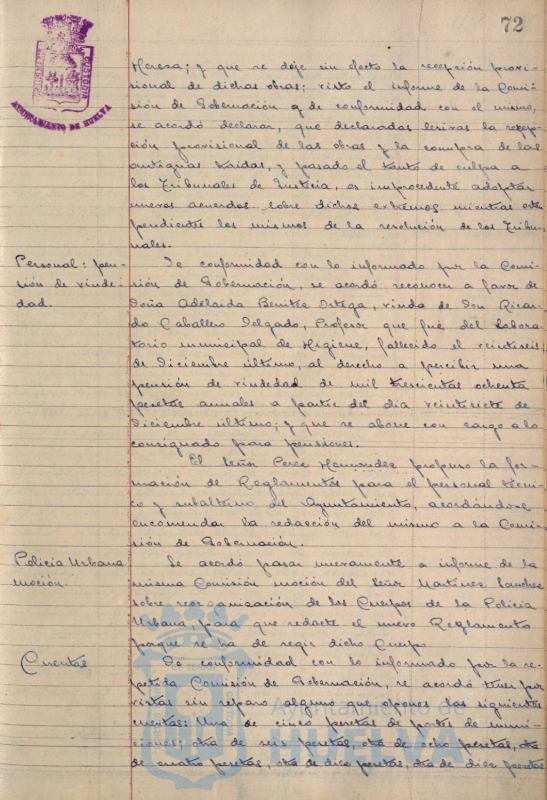 72
AYUNTAMIENTO DE HUELVA
y que se deje sin efecto la recepción provi-
sional de dichas obras; visto el informe de la Comi-
sión de Gobernación y de conformidad con el mismo,
se acordó declarar, que declaradas lesivas la recep-
ción provisional de las obras y la compra de las
antiguas traidas, y pasado el tanto de culpa a
los Tribunales de Justicia, es improcedente adoptar
nuevos acuerdos sobre dichos extremos mientras esten
pendientes los mismos de la resolución de los Tribu-
nales.
Personal: pen-
sión de viude-
dad.
De conformidad con lo informado por la Comi-
sión de Gobernación, se acordó reconocer a favor de
Doña Adelaida Benitez Ortega, viuda de Don Ricar-
do Caballero Delgado, Profesor que fué del Labora-
torio municipal de Higiene, fallecido el veintiseis
de Diciembre último, al derecho a percibir una
pensión de viudedad de mil trescientas ochenta
pesetas anuales a partir del dia veintisiete de
Diciembre último; y que se abone con cargo a lo
consignado para pensiones.
El Señor Perez Hernandez propuso la for-
mación de Reglamentos para el personal técni-
co y subalterno del Ayuntamiento, acordándose
encomendar la redacción del mismo a la Comi-
sión de Gobernación.
Policia Urbana
moción.
Se acordó pasar nuevamente a informe de la
misma Comisión moción del Señor Martinez Sanchez
sobre reorganización de los Cuerpos de la Policia
Urbana, para que redacte el nuevo Reglamento
porque se ha de regir dicho Cuerpo
Cuentas
De conformidad con lo informado por la re-
petida Comisión de Gobernación, se acordó tener por
vistas sin reparo alguno que oponer las siguientes
cuentas: Una de cinco pesetas de portes de muni-
ciones; otra de seis pesetas, otra de ocho pesetas, otra
de cuatro pesetas, otra de dice pesetas, otra de diez pesetas
Ayuntamiento de
HUELVA